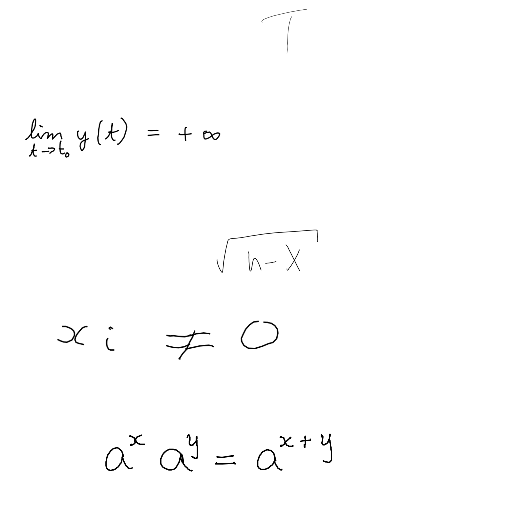 T
lim t→t₀ y(t) = +∞
√(n-x)
x i ≠ 0
aˣ aʸ = aˣ⁺ʸ